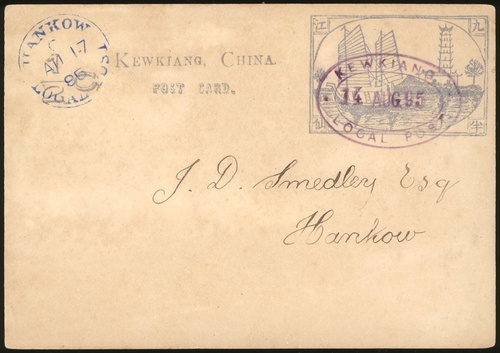 HANKOW
17
95
LOCAL POST
KEWKIANG, CHINA.
POST CARD.
九
江
半
仙
KEWKIANG
14 AUG 95
LOCAL POST
J. D. Smedley Esq
Hankow